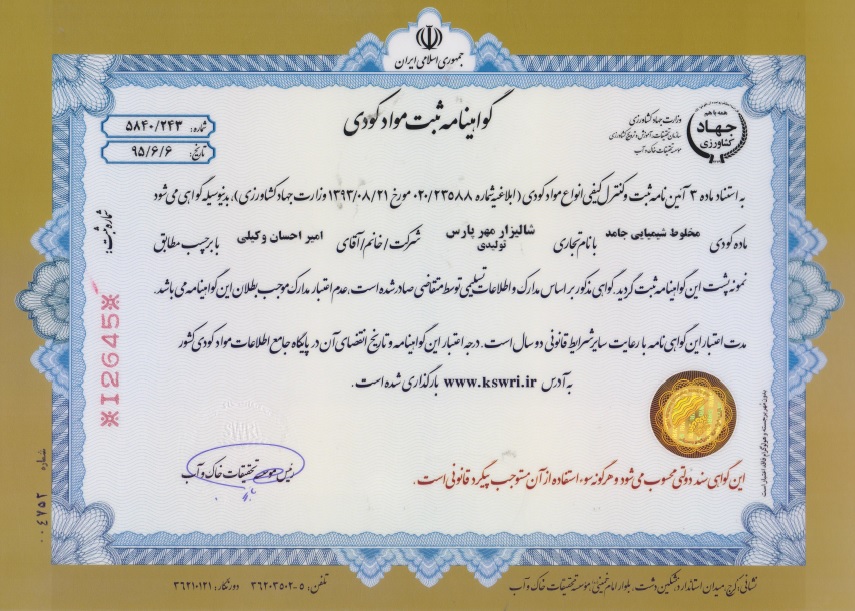 جمهوری اسلامی ایران
گواهینامه ثبت مواد کودی
شماره: ۵۸۴۰/۲۴۳
تاریخ: ۹۵/۶/۶
همه با هم
جهاد
کشاورزی
وزارت جهاد کشاورزی
سازمان تحقیقات، آموزش و ترویج کشاورزی
موسسه تحقیقات خاک و آب
به استناد ماده ۳ آیین نامه ثبت و کنترل کیفی انواع مواد کودی (ابلاغیه شماره ۰۲۰/۲۳۵۸۸ مورخ ۱۳۹۲/۰۸/۲۱ وزارت جهاد کشاورزی)، بدینوسیله گواهی می شود
ماده کودی مخلوط شیمیایی جامد با نام تجاری شالیزار مهر پارس تولیدی شرکت/خانم/آقای امیر احسان وکیلی با برچسب مطابق
نمونه پشت این گواهینامه ثبت گردید. گواهی مذکور بر اساس مدارک و اطلاعات تسلیمی توسط متقاضی صادر شده است. عدم اعتبار مدارک موجب بطلان این گواهینامه می باشد.
مدت اعتبار این گواهی نامه با رعایت سایر شرایط قانونی دو سال است. درجه اعتبار این گواهینامه و تاریخ انقضای آن در پایگاه جامع اطلاعات مواد کودی کشور
به آدرس www.kswri.ir بارگذاری شده است.
شماره ثبت:
※12645※
رئیس موسسه تحقیقات خاک و آب
این گواهی سند دولتی محسوب می شود و هرگونه سوء استفاده از آن مستوجب پیگرد قانونی است.
بدون مهر برجسته و هولوگرام فاقد اعتبار است
شماره ۰۰۴۷۵۲
نشانی: کرج، میدان استاندارد، مشکین دشت، بلوار امام خمینی، موسسه تحقیقات خاک و آب
تلفن: ۵-۳۶۲۰۳۵۰۲ دورنگار: ۳۶۲۱۰۱۲۱